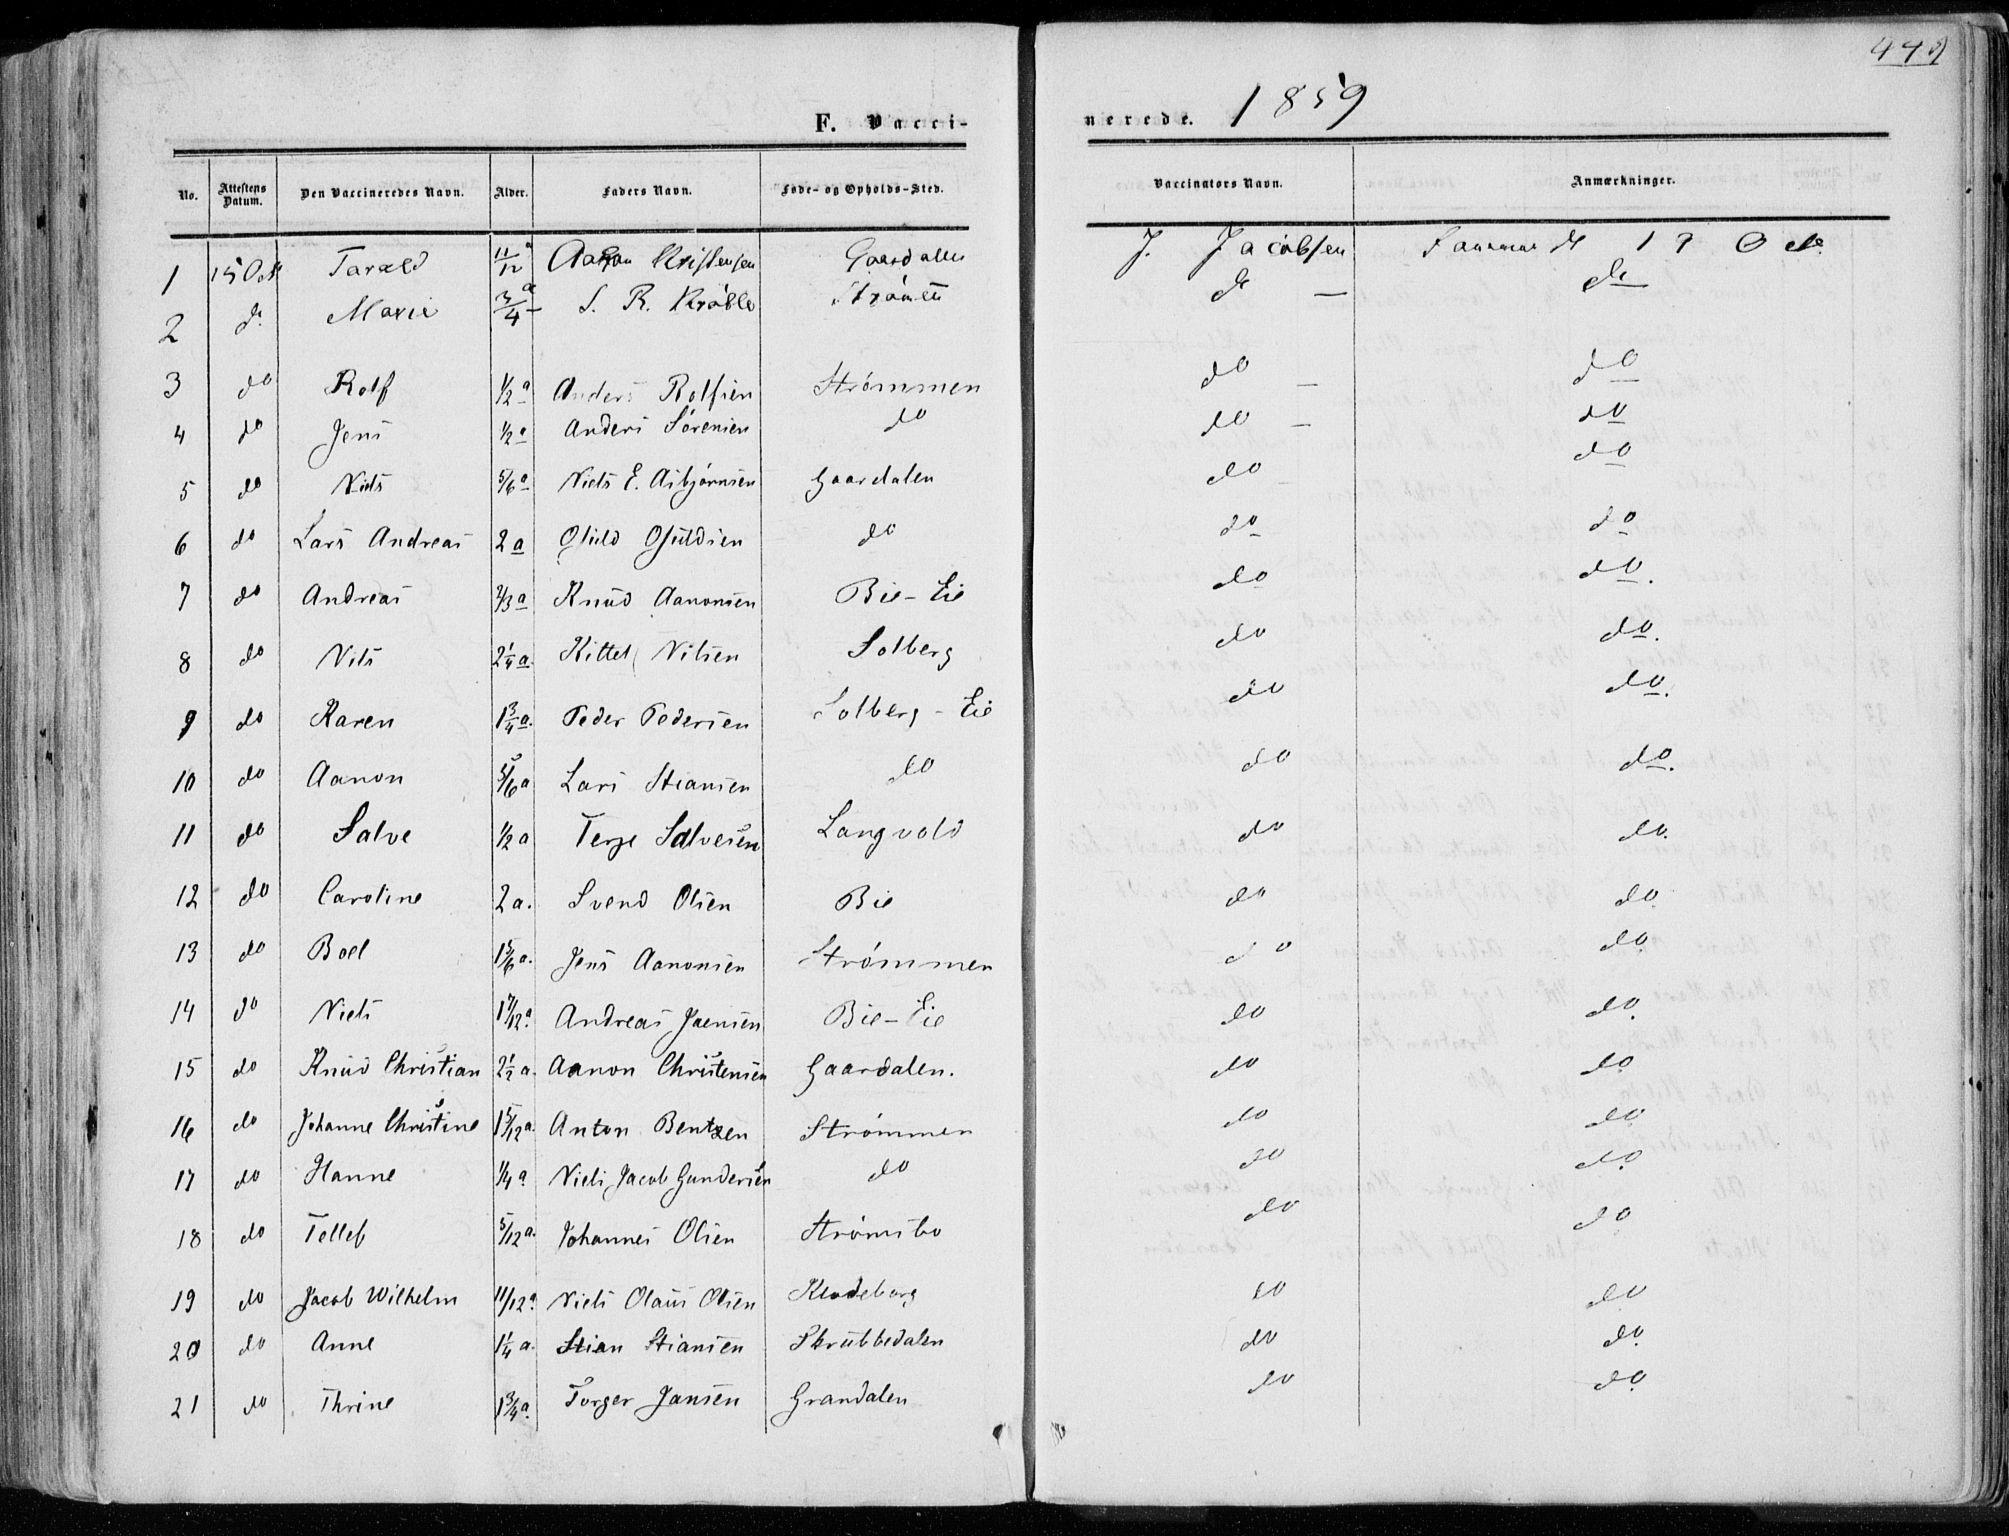 449
F. Vacci-
nerede. 1859
No. Attestens Datum. Den Vaccineredes Navn. Alder. Faders Navn. Føde- og Opholds-Sted. Vaccinators Navn. Anmærkninger.
1 15 Oct Tarald 11/12 a Aanon Kristensen Gaardalen J. Jacobsen 19 Octo.
2 do Marie 3/4 a S. R. Krøble Strømen do — do
3 do Rolf 1/2 a Anders Rolfsen Strømmen do — do
4 do Jens 1/2 a Anders Sørensen do do — do
5 do Niels 5/6 a Niels E. Asbjørnsen Gaardalen do - do
6 do Lars Andreas 2 a Osuld Osuldsen do do do
7 do Andreas 2/3 a Knud Aanonsen Bie-Eie do do.
8 do Nils 2 1/4 a. Kittel Nilsen Solberg do do.
9 do Karen 1 3/4 a. Peder Pedersen Solberg-Eie do do.
10 do Aanon 5/6 a Lars Stiansen do do do.
11 do Salve 1/2 a Terje Salvesen Langvold do do.
12 do Caroline 2 a. Svend Olsen Bie do do.
13 do Boel 1 5/6 a. Jens Aanonsen Strømmen do do.
14 do Niels 1 7/12 a. Andreas Jaensen Bie-Eie do do.
15 do Knud Christian 2 1/2 a. Aanon Christensen Gaardalen. do do.
16 do Johanne Christine 1 5/12 a. Anton Bentzen Strømmen do do.
17 do Hanne 1/4 a Niels Jacob Gundersen do do do.
18 do Tellef 5/12 a. Johannes Olsen Strømsbo do do
19 do Jacob Wilhelm 11/12 a. Niels Olaus Olsen Klodeborg do do
20 do Anne 1 1/4 a. Stian Stiansen Skrubbedalen do do.
21 do Thrine 1 3/4 a. Torger Jansen Grandalen do do.